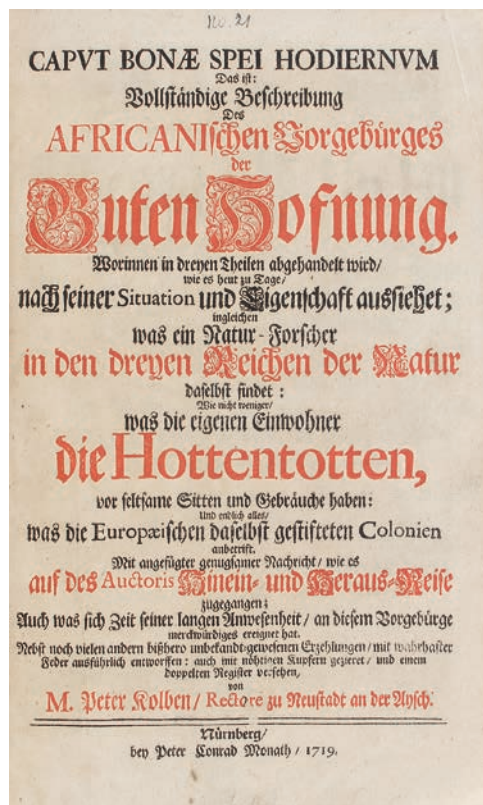 No. 21
CAPVT BONÆ SPEI HODIERNVM
Das ist:
Vollständige Beschreibung
Des
AFRICANIschen Vorgebürges
der
Guten Hofnung.
Worinnen in dreyen Theilen abgehandelt wird/
wie es heut zu Tage/
nach seiner Situation und Eigenschaft aussiehet;
ingleichen
was ein Natur-Forscher
in den dreyen Reichen der Natur
daselbst findet:
Wie nicht weniger/
was die eigenen Einwohner
die Hottentotten,
vor seltsame Sitten und Gebräuche haben:
Und endlich alles/
was die Europæischen daselbst gestifteten Colonien
anbetrift.
Mit angefügter genugsamer Nachricht/ wie es
auf des Auctoris Hinein- und Heraus-Reise
zugegangen;
Auch was sich Zeit seiner langen Anwesenheit/ an diesem Vorgebürge
merckwürdiges ereignet hat.
Nebst noch vielen andern bißhero unbekandt-gewesenen Erzehlungen/ mit wahrhafter
Feder ausführlich entworffen: auch mit nöhtigen Kupfern gezieret/ und einem
doppelten Register versehen,
von
M. Peter Kolben/ Rectore zu Neustadt an der Aysch.
Nürnberg/
bey Peter Conrad Monath/ 1719.